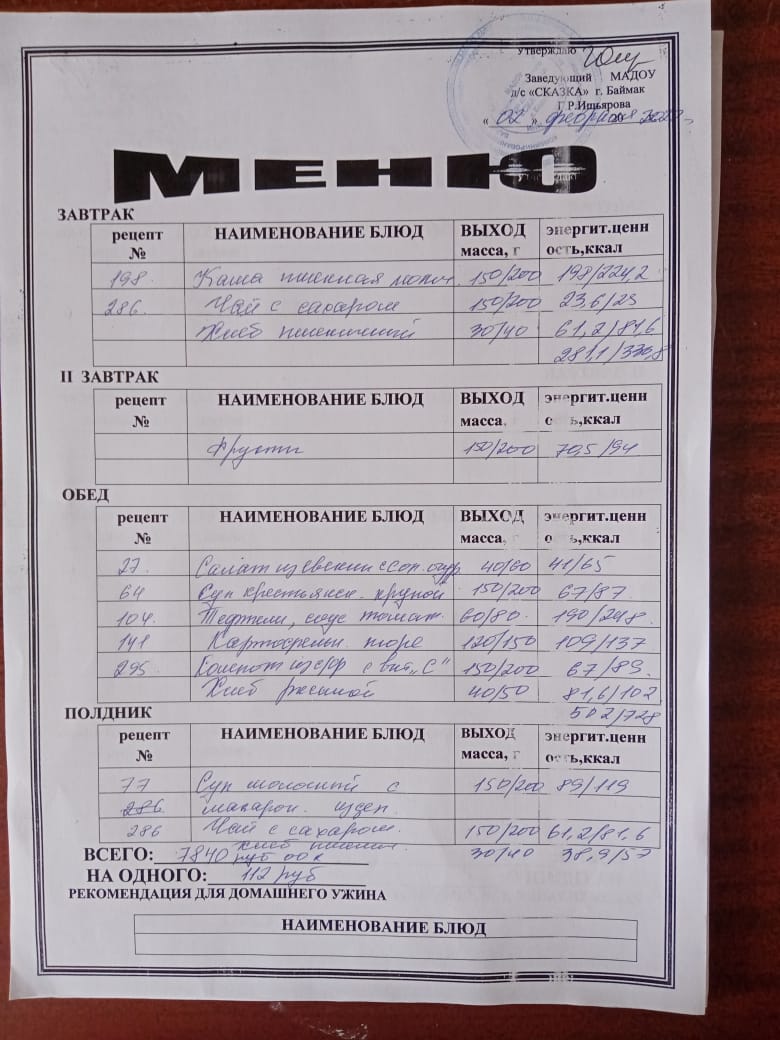 Утверждаю
Заведующий МАДОУ
д/с «СКАЗКА» г. Баймак
Г.Р.Ишьярова
« 02 » февраля 20
МЕНЮ
ЗАВТРАК
рецепт № НАИМЕНОВАНИЕ БЛЮД ВЫХОД масса, г энергит.ценн ость,ккал
198. Каша пшенная молоч. 150/200 198/224,2
286. Чай с сахаром 150/200 23,6/25
Хлеб пшеничный 30/40 61,2/81,6
281,1/330,8
II ЗАВТРАК
рецепт № НАИМЕНОВАНИЕ БЛЮД ВЫХОД масса, энергит.ценн ость,ккал
Фрукты 150/200 70,5/94
ОБЕД
рецепт № НАИМЕНОВАНИЕ БЛЮД ВЫХОД масса, г энергит.ценн ость,ккал
27. Салат из свеклы с сол. огур 40/60 41/65
64 Суп крестьянск. крупой 150/200 67/87
104. Тефтели, соус томат. 60/80. 190/248.
141 Картофельн. пюре 120/150 109/137
295. Компот из с/ф с вит. „С" 150/200 67/89.
Хлеб ржаной 40/50 81,6/102
502/728
ПОЛДНИК
рецепт № НАИМЕНОВАНИЕ БЛЮД ВЫХОД масса, г энергит.ценн ость,ккал
77 Суп молочный с 150/200 89/119
286 макарон. издел.
286 Чай с сахаром. 150/200 61,2/81,6
хлеб пшенич. 30/40 38,9/57
ВСЕГО: 7840 руб 00 к
НА ОДНОГО: 112 руб
РЕКОМЕНДАЦИЯ ДЛЯ ДОМАШНЕГО УЖИНА
НАИМЕНОВАНИЕ БЛЮД